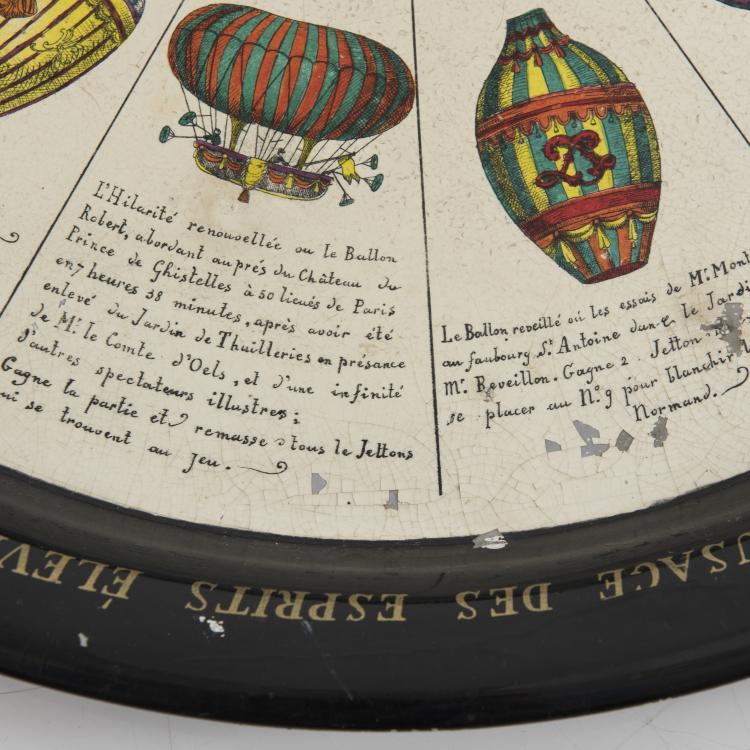 L'Hilarité renouvellée ou le Ballon
Robert, abordant auprés du Château du
Prince de Ghistelles à 50 lieués de Paris
en 7 heures 38 minutes, après avoir été
enlevé du Jardin de Thuilleries en présance
de Mr. le Comte d'Oels, et d'une infinité
d'autres spectateurs illustres;
Gagne la partie et remasse tous le Jettons
qui se trouvent au jeu.
Le Ballon reveillé où les essais de Mr. Mont
au faubourg St. Antoine dans le Jardi
Mr. Reveillon. Gagne 2 Jetton
se placer au No. 9 pour blanchir
Normand.
USAGE DES ESPRITS ÉLEV